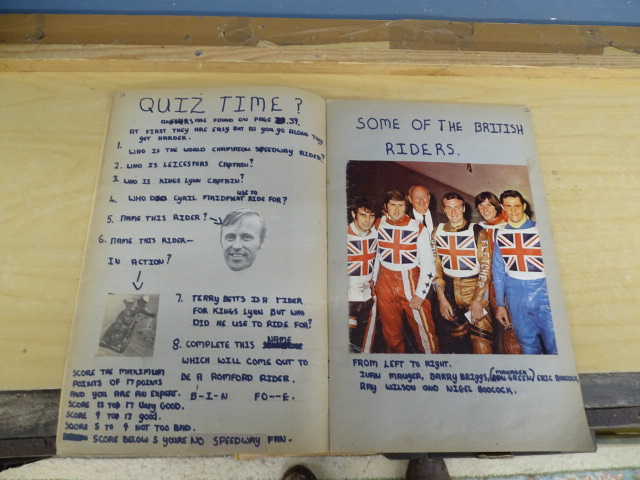 QUIZ TIME?
ANSWERS ARE FOUND ON PAGE 39.
AT FIRST THEY ARE EASY BUT AS YOU GO ALONG THEY
GET HARDER.
1. WHO IS THE WORLD CHAMPION SPEEDWAY RIDER?
2. WHO IS LEICESTERS CAPTAIN?
3. WHO IS KINGS LYNN CAPTAIN?
4. WHO DOES CYRIL MAIDMENT USE TO RIDE FOR?
5. NAME THIS RIDER?
6. NAME THIS RIDER—
IN ACTION?
7. TERRY BETTS IS A RIDER
FOR KINGS LYNN BUT WHO
DID HE USE TO RIDE FOR?
8. COMPLETE THIS NAME
WHICH WILL COME OUT TO
BE A ROMFORD RIDER.
B-I-N FO--E.
SCORE THE MAXIMUM
POINTS OF 17 POINTS
AND YOU ARE AN EXPERT.
SCORE 13 TOP 17 VERY GOOD.
SCORE 9 TOP 13 GOOD.
SCORE 5 TO 9 NOT TOO BAD.
SCORE BELOW 5 YOURE NO SPEEDWAY FAN.
SOME OF THE BRITISH
RIDERS.
FLETCHER
FROM LEFT TO RIGHT.
IVAN MAUGER, BARRY BRIGGS, (MANAGER RON GREEN) ERIC BOOCOCK,
RAY WILSON AND NIGEL BOOCOCK.